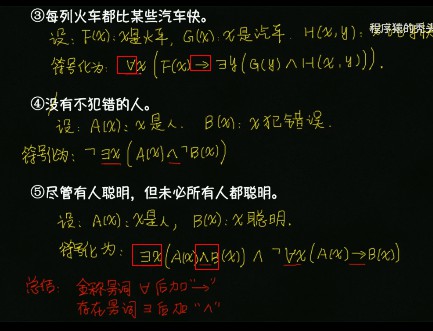 ③每列火车都比某些汽车快。
程序猿的秃头
设：F(x)：x是火车，G(x)：x是汽车. H(x,y)：
符号化为：∀x(F(x)→∃y(G(y)∧H(x,y))).
④没有不犯错的人。
设：A(x)：x是人. B(x)：x犯错误.
符号化为：¬∃x(A(x)∧¬B(x))
⑤尽管有人聪明，但未必所有人都聪明。
设：A(x)：x是人，B(x)：x聪明.
符号化为：∃x(A(x)∧B(x))∧¬∀x(A(x)→B(x))
总结：全称量词∀后加"→"
存在量词∃后加"∧"